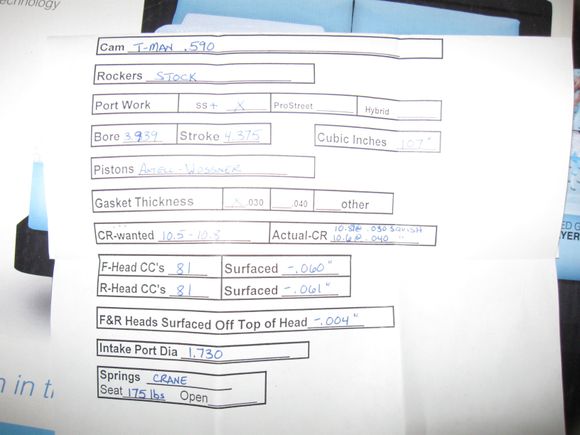 echnology
Cam T-MAN .590
Rockers STOCK
Port Work SS+ X ProStreet Hybrid
Bore 3.939 Stroke 4.375 Cubic Inches 107"
Pistons AXTELL-WOSSNER
Gasket Thickness X .030 .040 other
CR-wanted 10.5-10.8 Actual-CR 10.81@ .030 SQUISH
10.6@ .040 "
F-Head CC's 81 Surfaced -.060"
R-Head CC's 81 Surfaced -.061"
F&R Heads Surfaced Off Top of Head -.004"
Intake Port Dia 1.730
Springs CRANE
Seat 175 lbs Open
n in t
ED G
YER